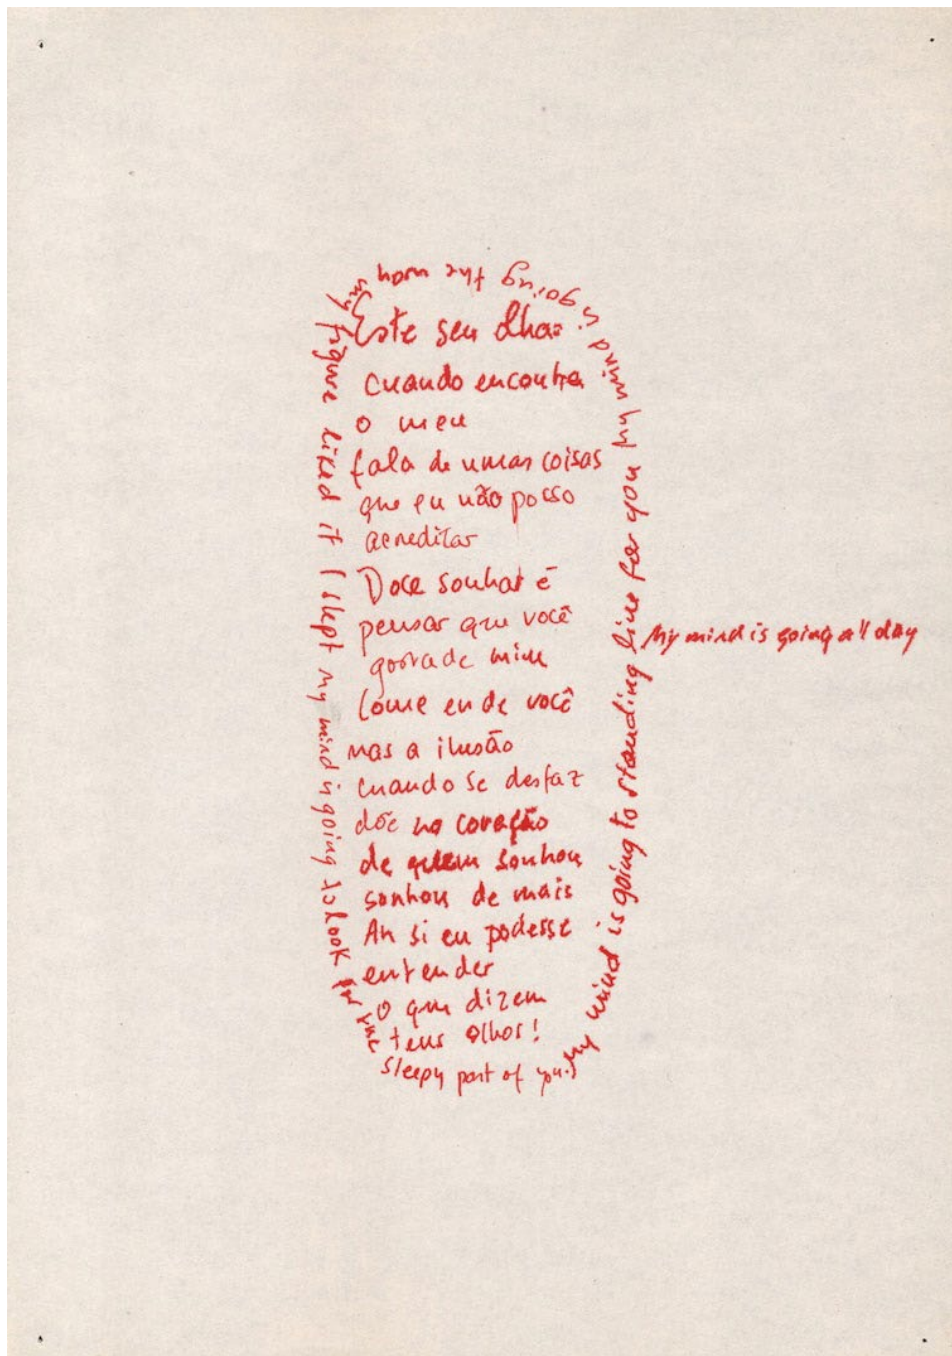 Este seu olhar
cuando encontra
o meu
fala de umas coisas
que eu não posso
acreditar
Doce sonhar é
pensar que você
gosta de mim
Come eu de você
mas a ilusão
cuando se desfaz
dóe no coração
de quem sonhou
sonhou de mais
Ah si eu podesse
entender
o que dizem
teus olhos!
my figure liked if I slept my mind is going to look for the sleepy part of you. My mind is going to standing line for you my mind is going the
My mind is going all day